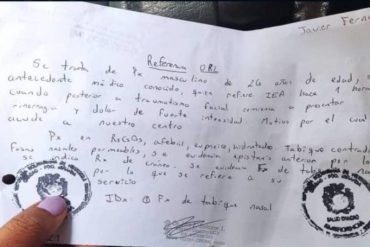 Javier Fern
Referencia ORL
Se trata de Px masculino de 26 años de edad,
antecedente médico conocido, quien refiere IEA hace 1 hora
cuando posterior a traumatismo facial comienza a presentar
rinorragia y dolor de fuerte intensidad. Motivo por el cual
acude a nuestro centro
Px en RsCsGs, afebril, eupneico, hidratado. Tabique
Fosas nasales permeables, se evidencia epistaxis anterior por lo
se indica Rx de cráneo. Se evidencia Fx de tabique
por lo que se refiere a su
servicio
IDx: ① Fx de tabique nasal
SALUD CHACAO